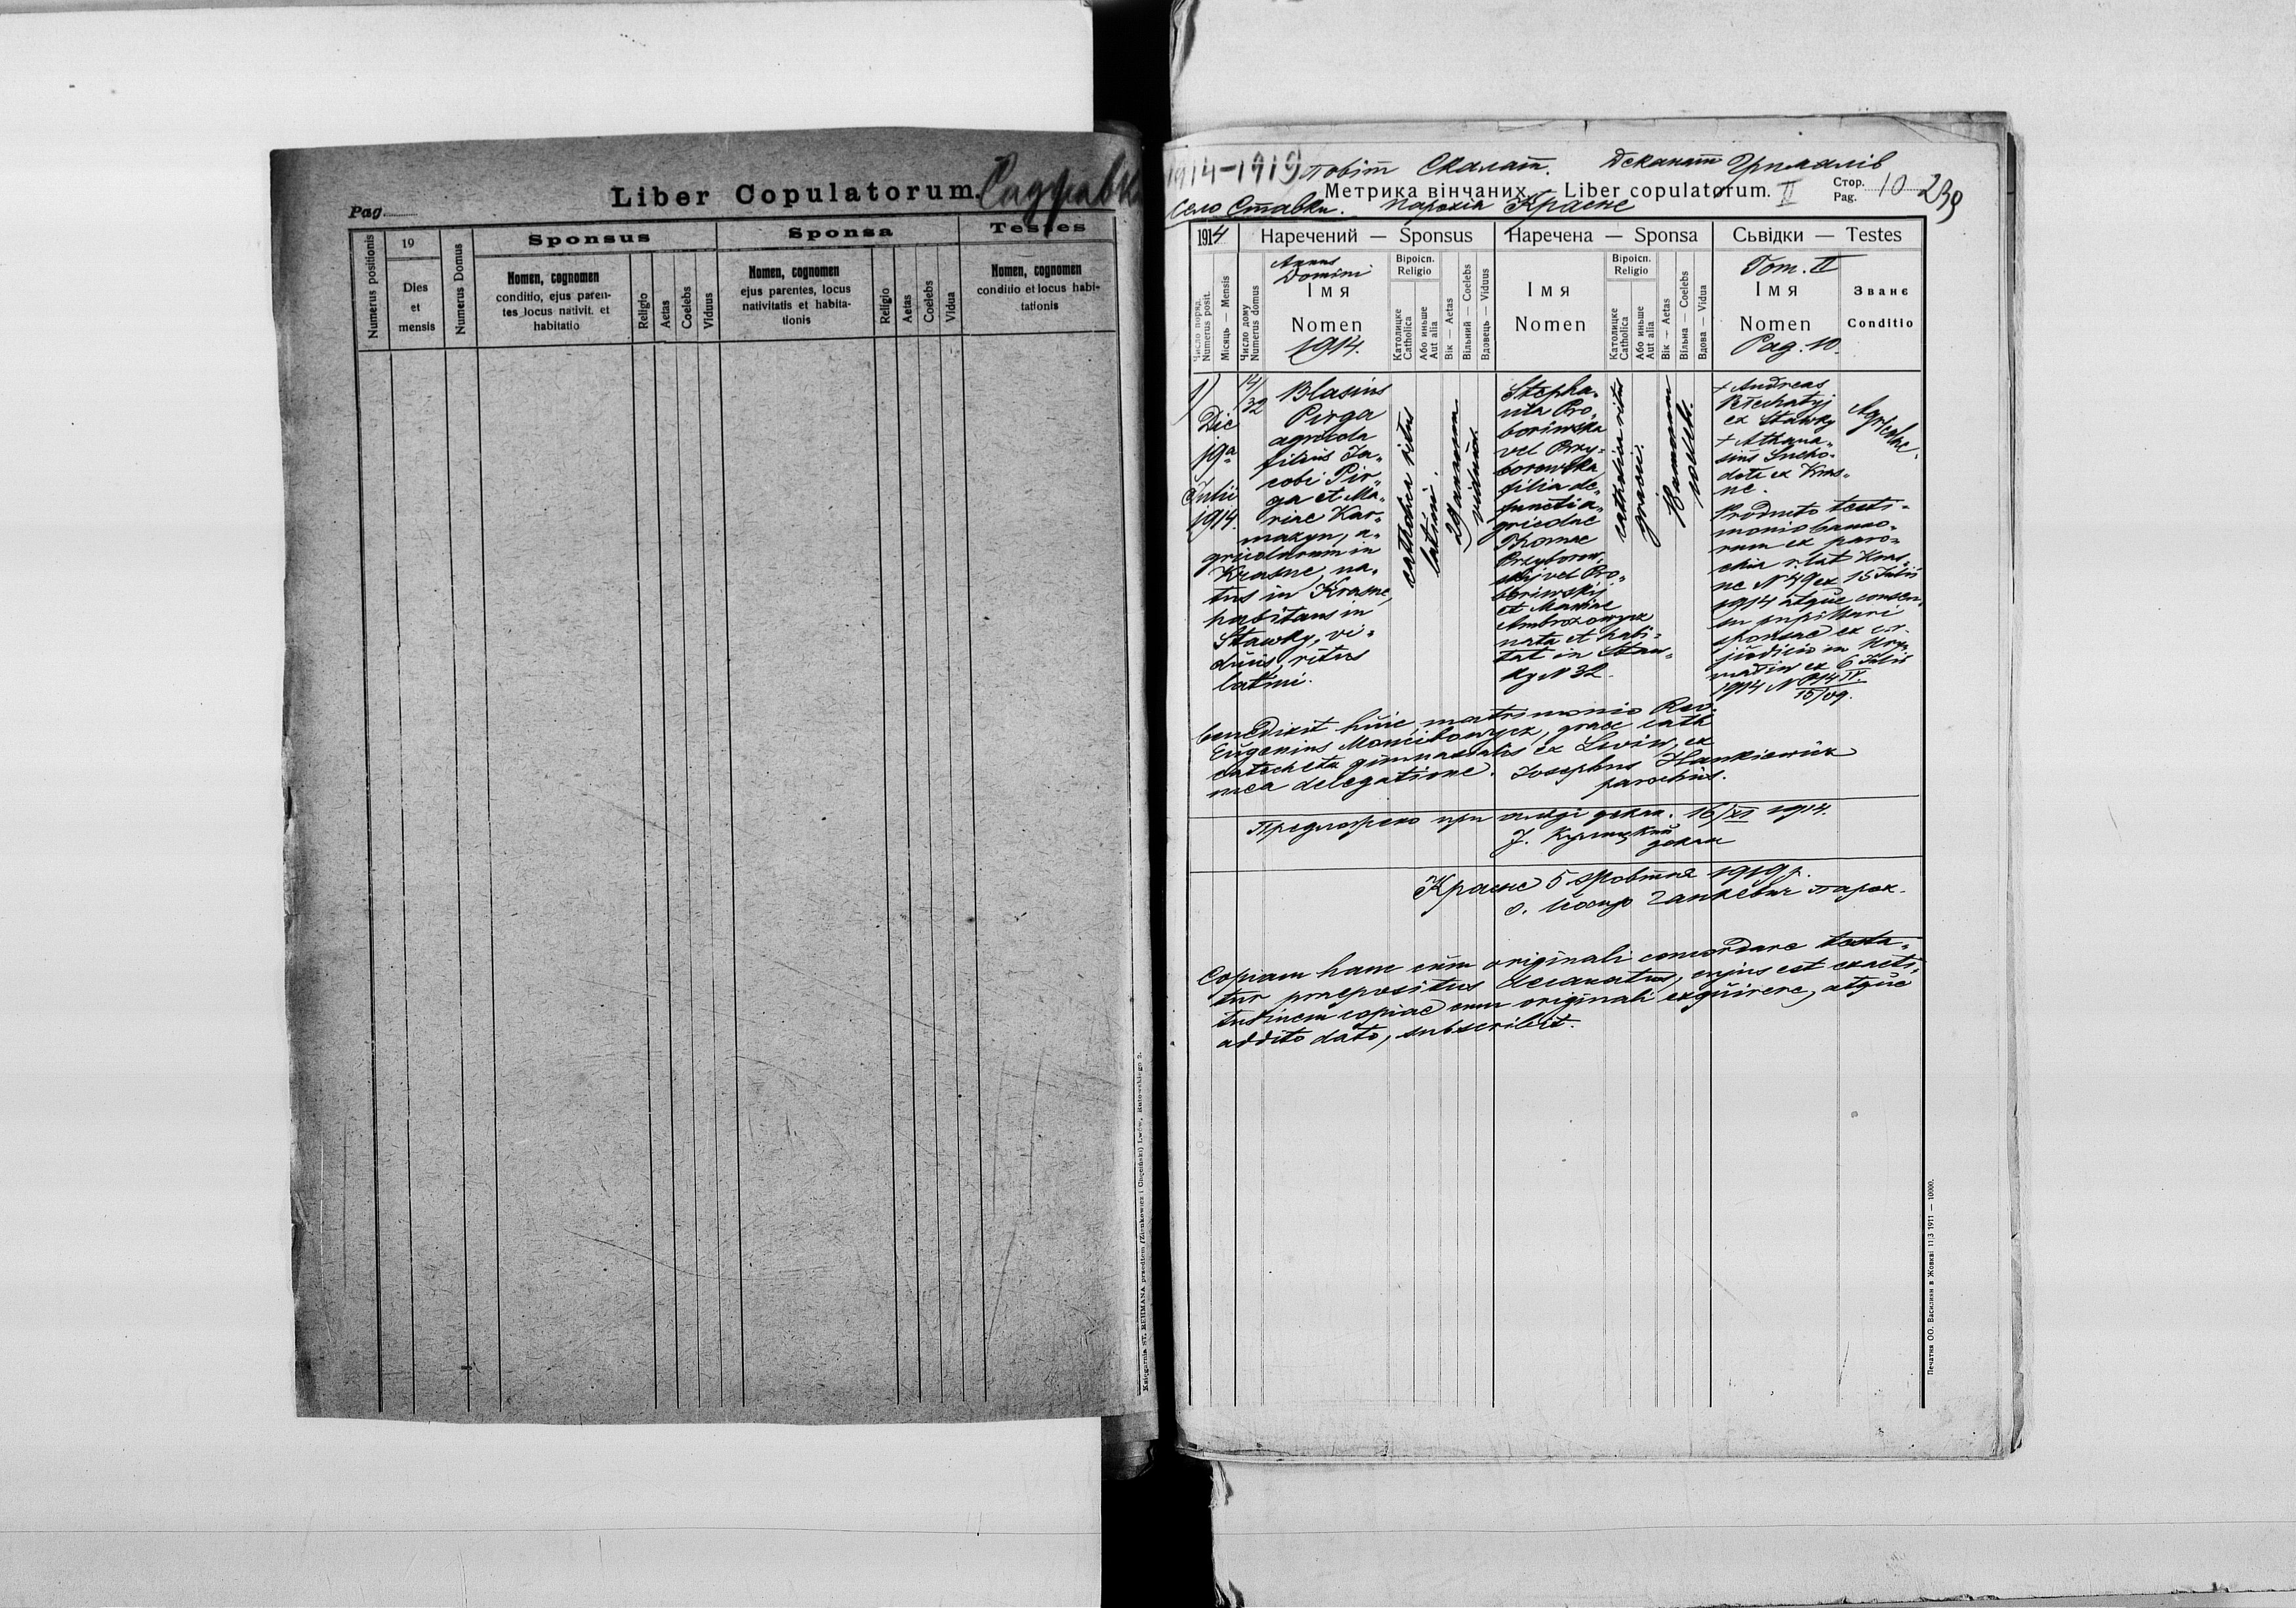 Liber Copulatorum.
Pag.
Numerus positionis
19
Dies
et
mensis
Numerus Domus
Sponsus
Nomen, cognomen
conditio, ejus paren-
tes locus nativit. et
habitatio
Religio
Aetas
Coelebs
Viduus
Sponsa
Nomen, cognomen
ejus parentes, locus
nativitatis et habita-
tionis
Religio
Aetas
Coelebs
Vidua
Testes
Nomen, cognomen
conditio et locus habi-
tationis
1914-1919 повіт Скалат. Деканат Грималів
Метрика вінчаних. Liber copulatorum. II
Стор.
Pag. 10 239
Село Ставки. Парохія Красне
1914
Число поряд.
Numerus posit.
Місяць — Mensis
Число дому
Numerus domus
Наречений — Sponsus
Annus
Domini
Імя
Nomen
1914.
Віроісп.
Religio
Католицке
Catholica
Або иньше
Aut alia
Вік — Aetas
Вільний — Coelebs
Вдовець — Viduus
Наречена — Sponsa
Імя
Nomen
Віроісп.
Religio
Католицке
Catholica
Або иньше
Aut alia
Вік — Aetas
Вільна — Coelebs
Вдова — Vidua
Сьвідки — Testes
Tom. II
Імя
Nomen
Pag. 10.
Званє
Conditio
1)
Die
19a
Julii
1914.
14/
/32
Blasius
Pirga
agricola
filius Ja-
cobi Pir-
ga et Ma-
riae Kar-
mazyn, a-
gricolarum in
Krasne, na-
tus in Krasne,
habitans in
Stawky, vi-
duus, ritus
latini.
catholica ritus
latini.
29 annorum
viduus
Stepha-
nia Pro-
boriwska
vel Przy-
borowska
filia de-
functi a-
gricolae
Thomae
Przyborow-
skij vel Pro-
boriwskij
et Mariae
Ambrozowycz
nata et habi-
tat in Staw-
ky N 32.
catholica ritus
graeci.
18 annorum
coeleb.
+ Andreas
ex Stawky
+ Athana-
sius Sucho-
ex Kras-
ne.
Agricolae.
Producto testi-
monio banno-
rum ex paro-
chia r. lat Kras-
ne N 49 ex 15 Julii
1914 atque consen-
su pupillari
sponsae ex c. r.
judicio in Hry-
maliw ex 6 Julii
1914 N P 14 IV.
15/09.
benedixit huic matrimonio Rev.
Eugenius Moncibowycz, graec. cath
catecheta gimnasialis ex Lwiw, ex
mea delegatione. Josephus Hankiewicz
parochus.
Предложено при декан. 16/XI 1914.
декан
Красне 5 жовтня 1919 р.
о. Йосиф Ганкевич парох.
Copiam hanc cum originali concordare testa-
tur praepositus decanatus, cujus est exacti-
tudinem copiae cum originali exquirere, atque
addito dato, subscribit.
Księgarnia ST. REHMANA przedtem (Zienkowicz i Chęciński) Lwów, Rutowskiego 2.
Печатня ОО. Василиян в Жовкві 11|3 1911 — 10000.